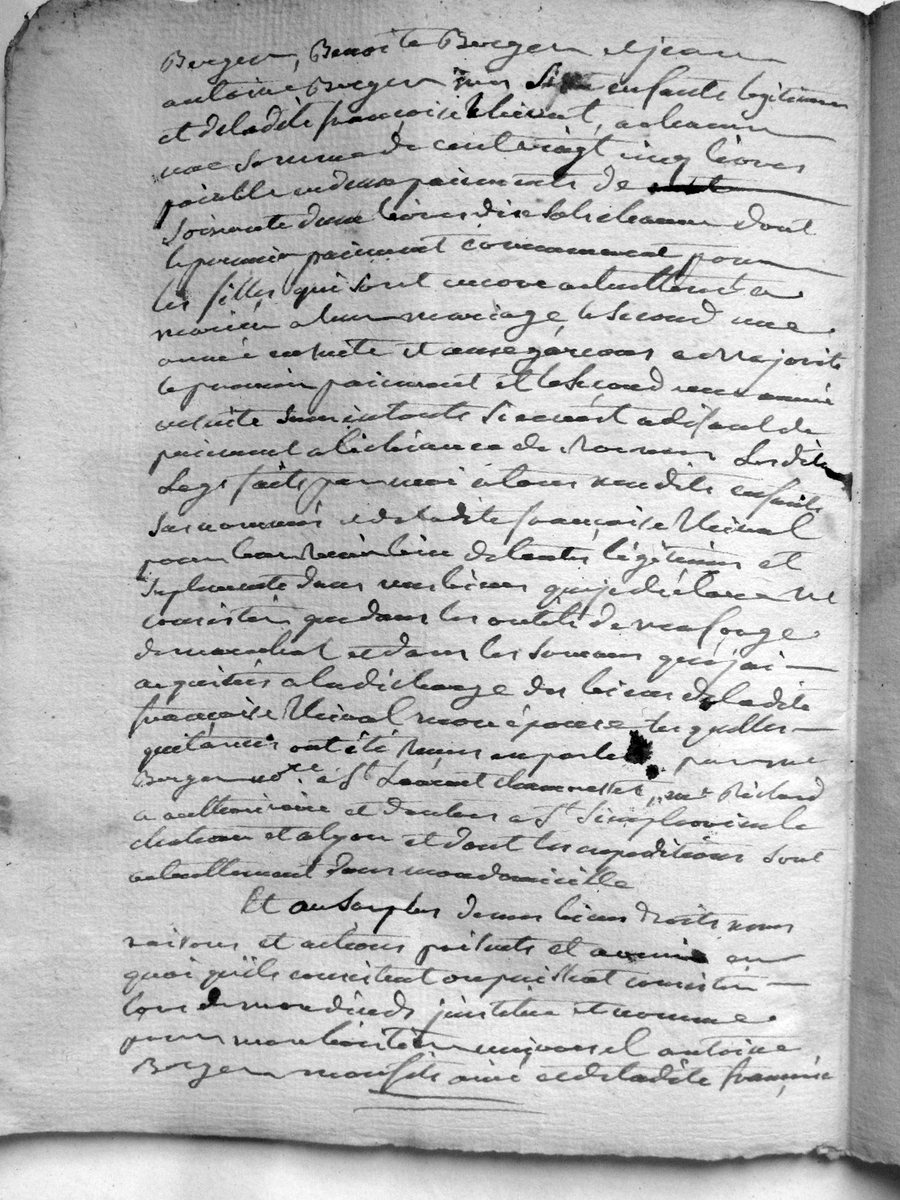 Berger, Benoite Berger et jean
antoine Berger mes enfants légitimes
et de ladite françoise Thievat, a chacun
une somme de cent vingt cinq livres
paiable en deux paiements de
soixante deux livres dix sols chacun dont
le premier paiement commencent pour
les filles qui sont encore actuellement a
marier a leur mariage le second une
année ensuite et aux garçons a majorité
le premier paiement et le second une année
ensuite sans interets si ce n'est a difaut de
paiement a l'echeance de Lesdits
Legs faits par moi a tous mesdits enfants
sus nommés et de ladite françoise
pour leur tenir lieu de toutes légitimes et
suplements dans mes biens que je déclare ne
consister que dans les outils de ma forge
de marechal et dans les sommes que j'ai
acquittées a la décharge des biens de ladite
françoise mon épouse les quelles
quitances ont été par me
Berger nore à St Laurent Chamousset, me Richard
et a St Simphorien le
chateau et a lyon et dont les expeditions sont
actuellement dans mon domicille
Et au surplus de mes biens droits noms
raisons et actions présents et avenir en
quoi qu'ils consistent ou puissent consister
lors de mon décés j'institue et nomme
pour mon héritier universel antoine
Berger mon fils ainé et de ladite françoise